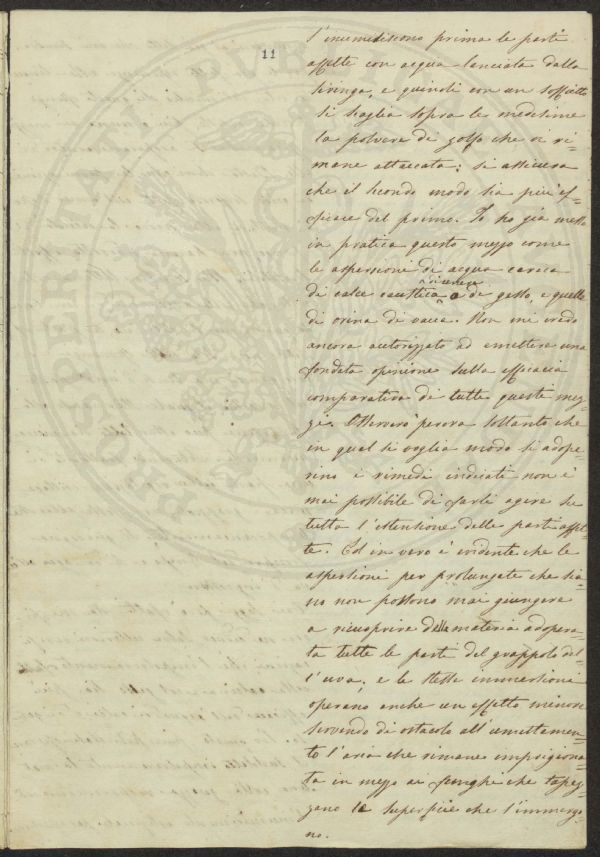 11
s'inumidiscono prima le parti
affette con acqua lanciata dalla
siringa, e quindi con un soffietto
si scaglia sopra le medesime
la polvere di zolfo che vi ri-
mane attaccata; si assicura
che il secondo modo sia più ef-
ficace del primo. Io ho già messo
in pratica questo mezzo come
le aspersioni di acqua carica
di calce caustica o di cenere o di gesso, e quelle
di orina di vacca. Non mi credo
ancora autorizzato ad emettere una
fondata opinione sulla efficacia
comparativa di tutti questi mez-
zi. Osserverò perora soltanto che
in qual si voglia modo si adope-
rino i rimedi indicati non è
mai possibile di farli agire su
tutta l'estensione delle parti affet-
te. Ed in vero è evidente che le
aspersioni per prolungate che sia-
no non possono mai giungere
a ricuoprire della materia adopera-
ta tutte le parti del grappolo del-
l'uva, e le stesse immersioni
operano anche un effetto minore
servendo di ostacolo all'umettamen-
to l'aria che rimane imprigiona-
ta in mezzo ai funghi che tapez-
zano le superficie che s'immergo-
no.
PROSPERITATI PUBLICAE